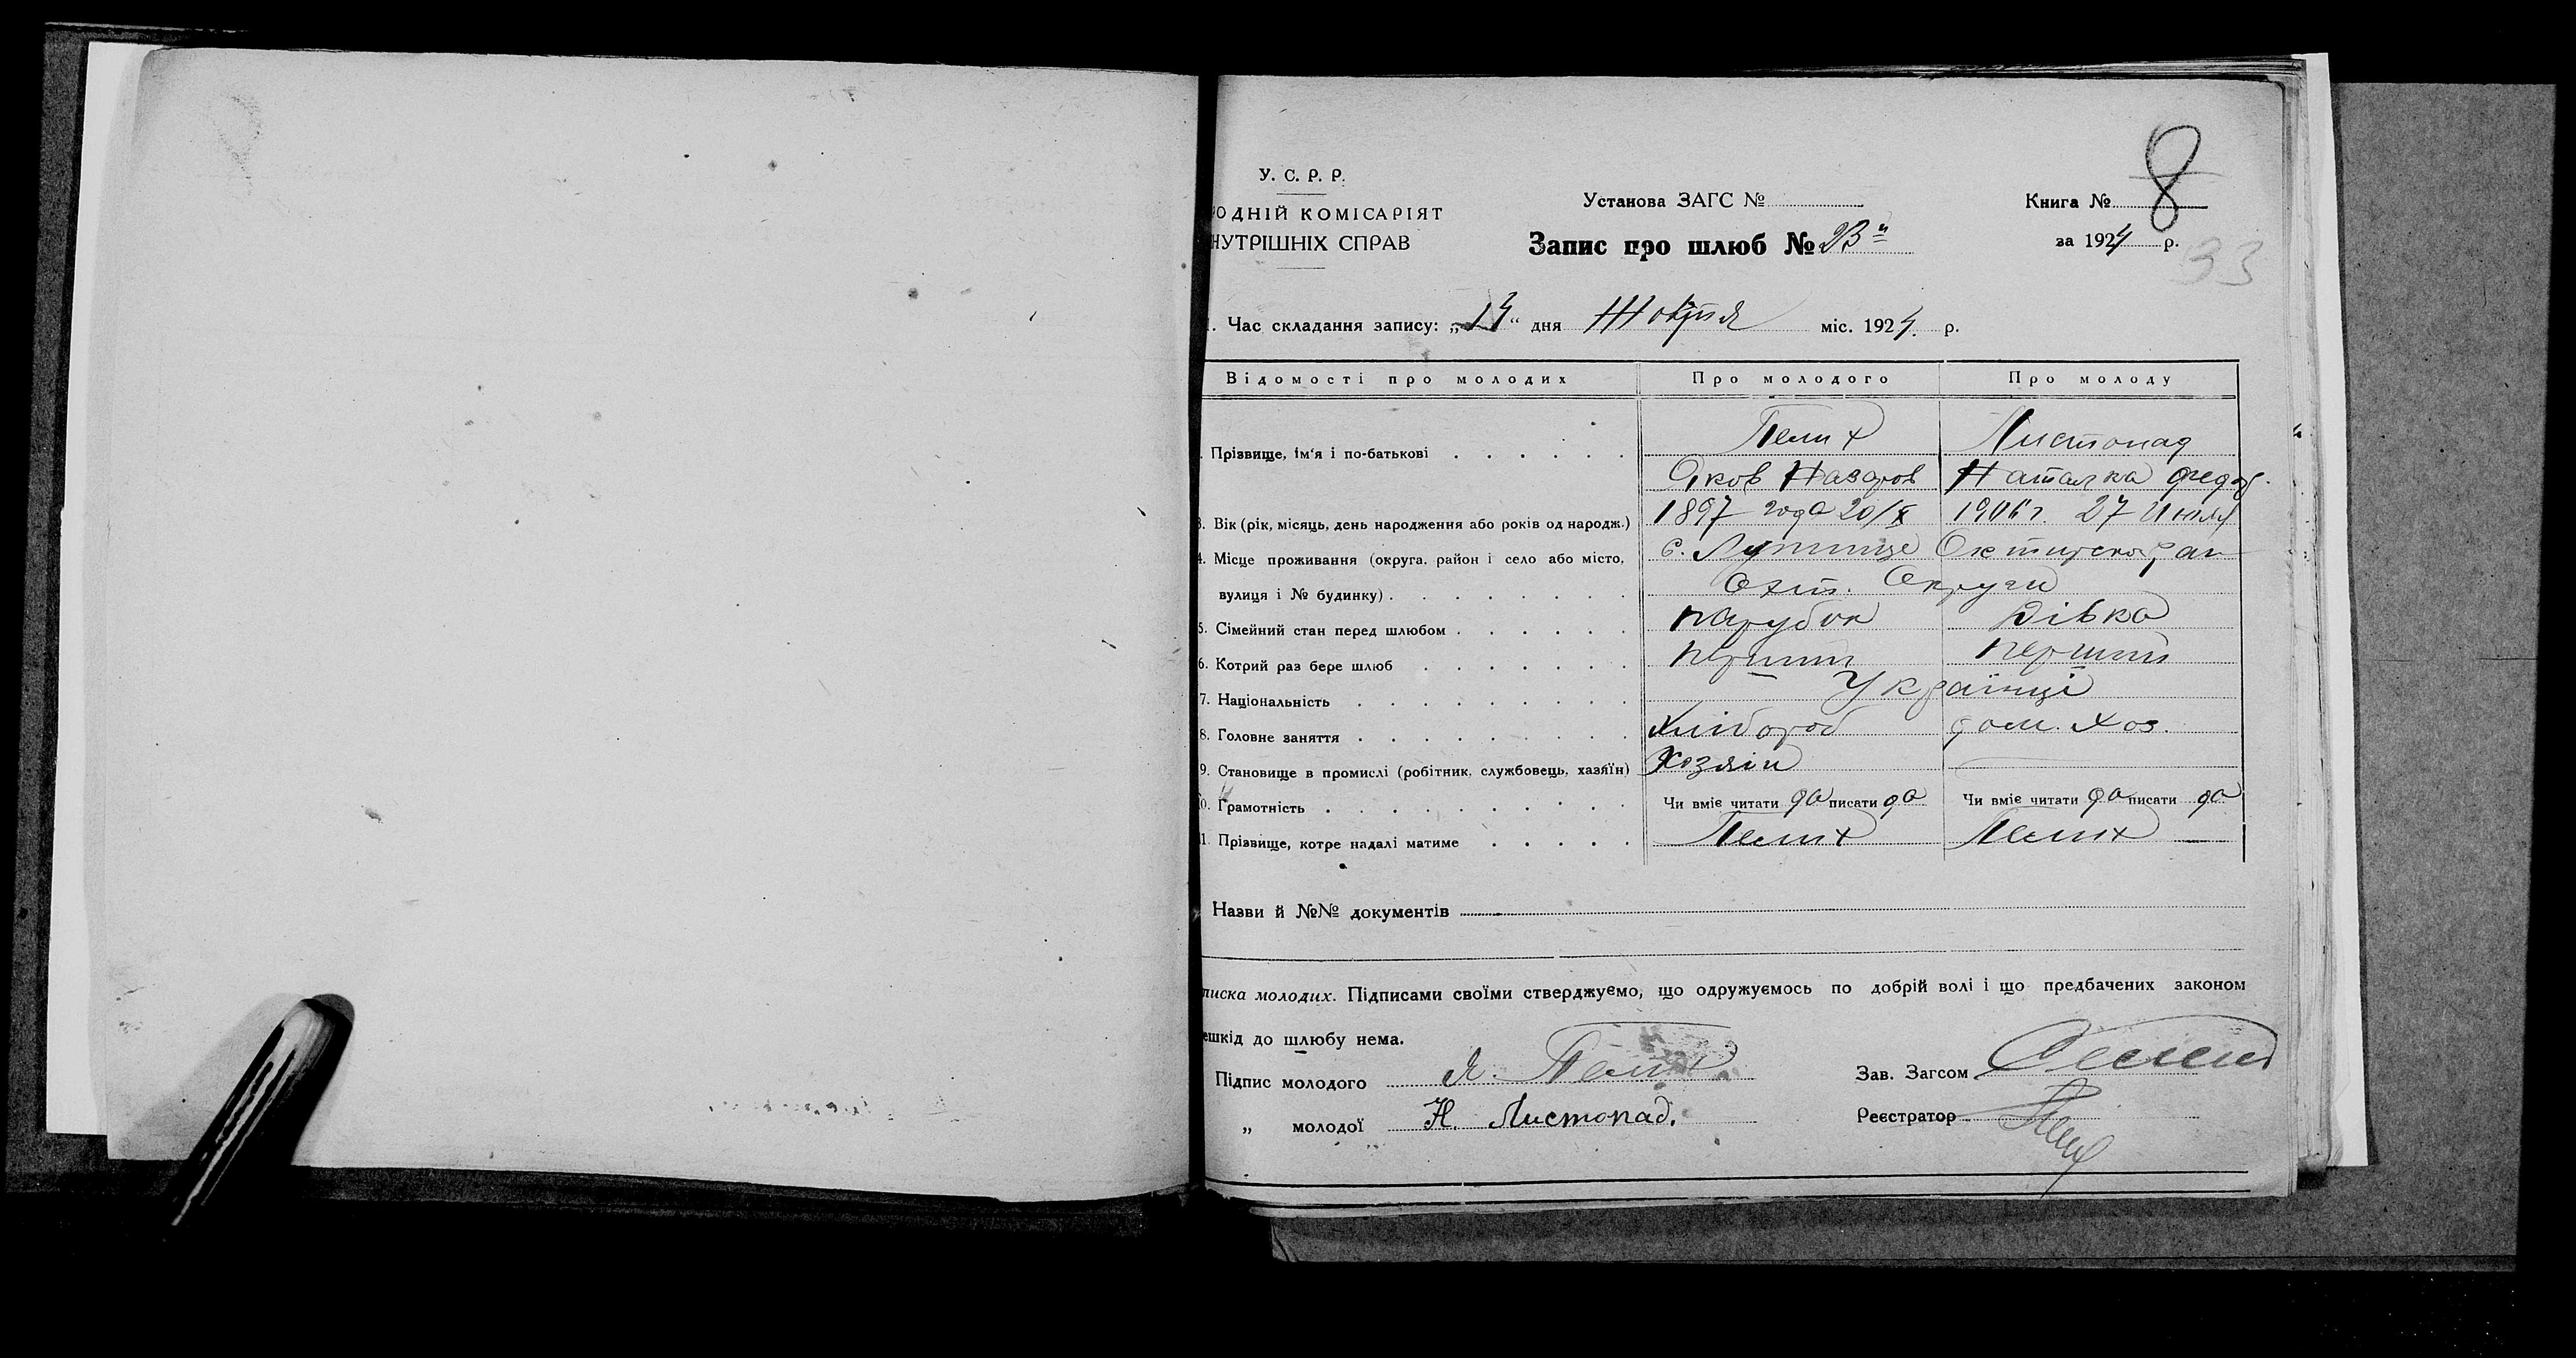 У. С. Р. Р.
ОДНІЙ КОМІСАРІЯТ
НУТРІШНІХ СПРАВ
Установа ЗАГС №
Запис про шлюб № 23
Книга № 8
за 1924 р.
33
1. Час складання запису: „14“ дня Жовтня міс. 1924 р.
Відомості про молодих Про молодого Про молоду
Прізвище, ім'я і по-батькові Пелих Листопад
Яков Назаров Наталка Федор.
3. Вік (рік, місяць, день народження або років од народж.) 1897 года 20/X 1906 г. 27 Июля
4. Місце проживання (округа, район і село або місто, с. Лутище Охтирског рай
вулиця і № будинку) Охт. Округи
5. Сімейний стан перед шлюбом парубок Дівка
6. Котрий раз бере шлюб перший перший
7. Національність Українці
8. Головне заняття Хлібороб дом. хоз.
9. Становище в промислі (робітник, службовець, хазяїн) Хозяін —
10. Грамотність Чи вміє читати да писати да Чи вміє читати да писати да
11. Прізвище, котре надалі матиме Пелих Пелих
Назви й №№ документів
писка молодих. Підписами своїми стверджуємо, що одружуємось по добрій волі і що предбачених законом
ешкід до шлюбу нема.
Підпис молодого Я. Пелих
Зав. Загсом
„ молодої Н. Листопад.
Реєстратор